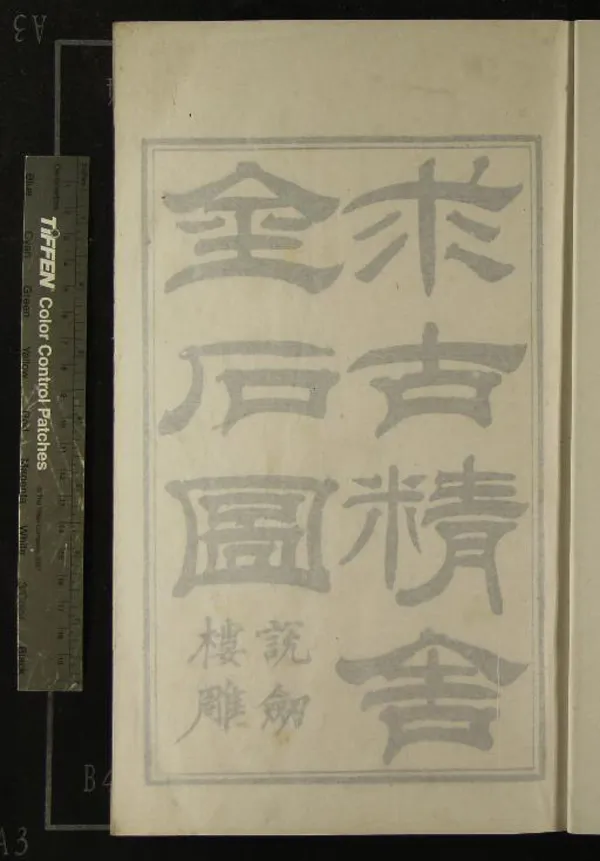 求古精舍
金石圖
說劒
樓雕
TIFFEN Color Control Patches
Blue
Cyan
Green
Yellow
Red
Magenta
White
Black
A3
B4
A3